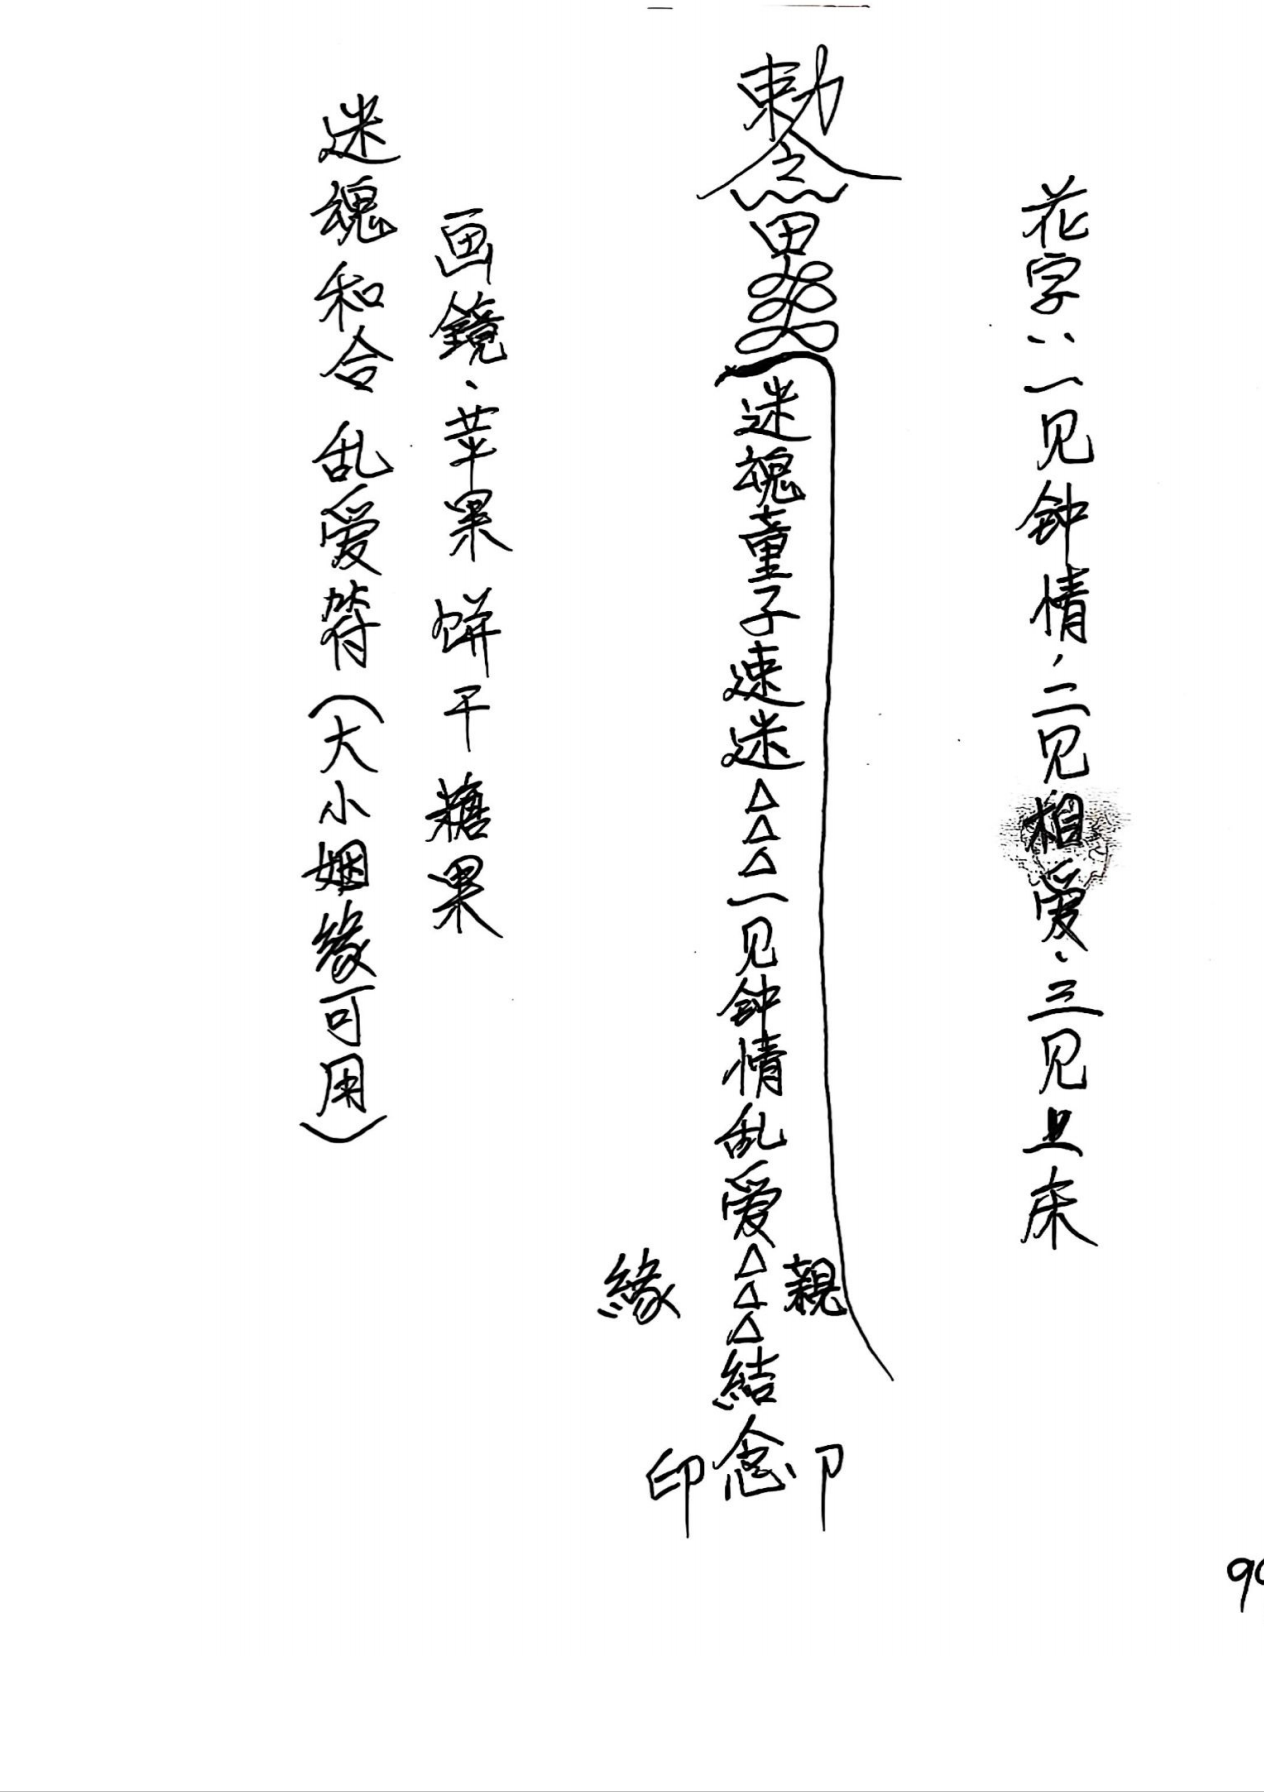 花字：一见钟情，二见相爱、三见上床
勅令
田
迷魂童子速迷△△△一见钟情乱爱△△△結
親
緣
印 念 卩
画鏡、苹果 饼干 糖果
迷魂和合 乱爱符（大小姻缘可用）
90